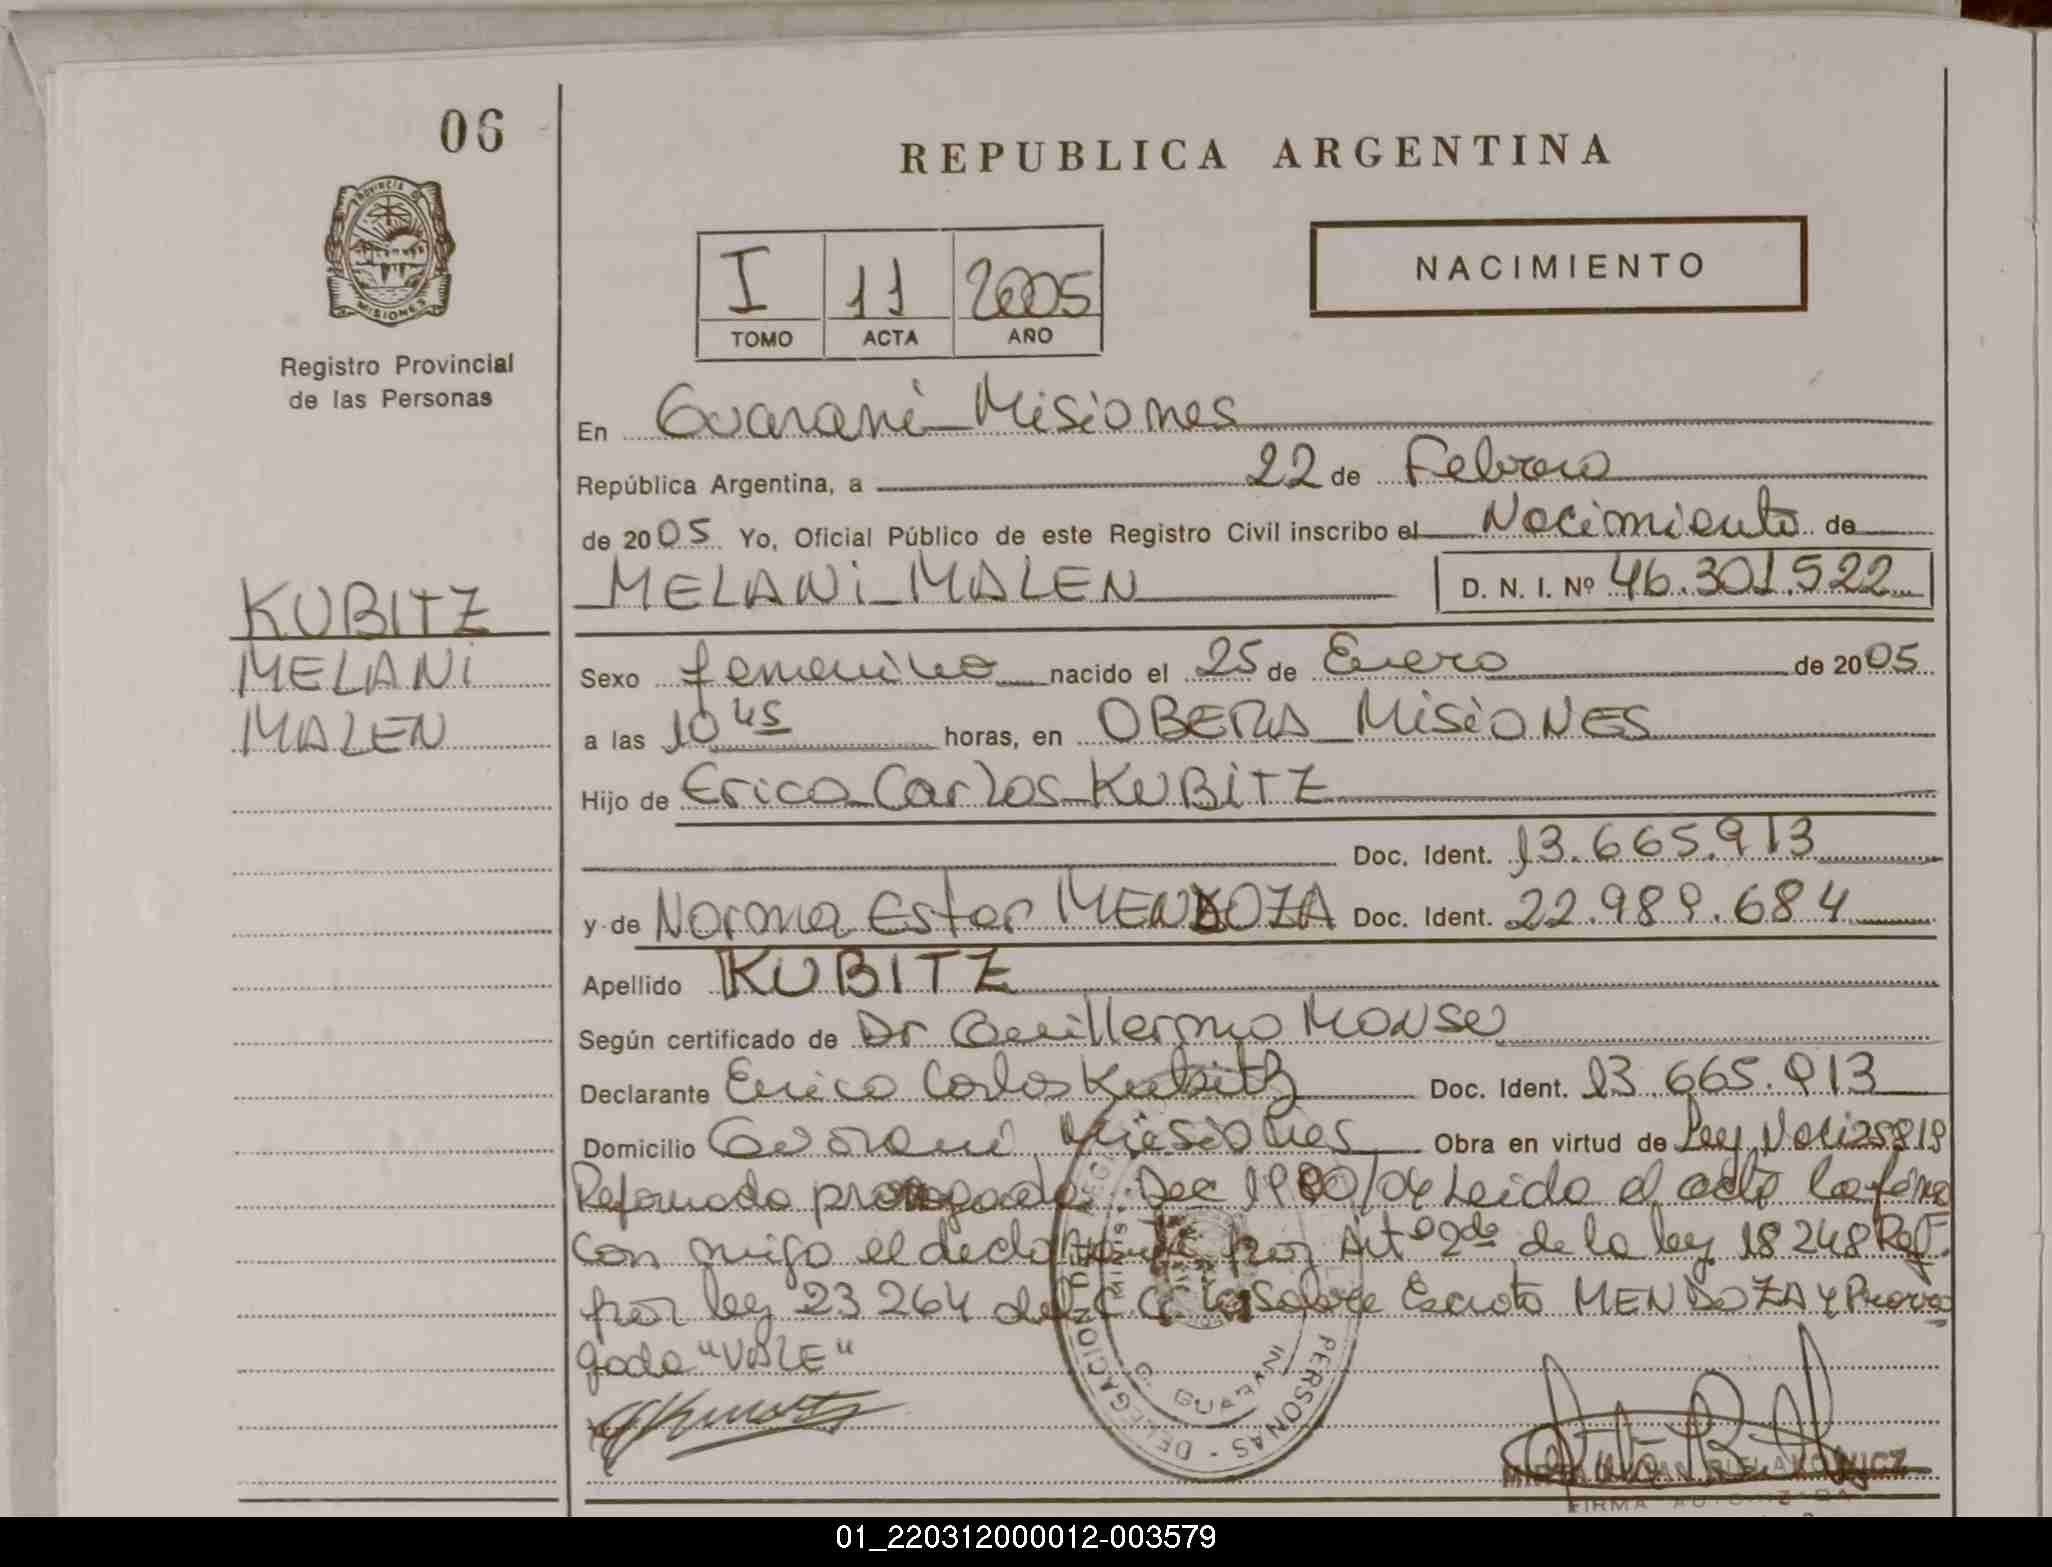 06
REPUBLICA ARGENTINA
PROVINCIA DE
MISIONES
Registro Provincial
de las Personas
I 11 2005
TOMO ACTA AÑO
NACIMIENTO
En Guarani Misiones
República Argentina, a 22 de Febrero
de 2005 Yo, Oficial Público de este Registro Civil inscribo el Nacimiento de
MELANi MALEN D. N. I. Nº 46.301.522
KUBITZ
MELANi
MALEN
Sexo femenino nacido el 25 de Enero de 2005
a las 10 45 horas, en OBERA MisiONES
Hijo de Erico Carlos KUBiTZ
Doc. Ident. 13.665.913
y de Norma Ester MENDOZA Doc. Ident. 22.989.684
Apellido KUBITZ
Según certificado de Dr Guillermo
Declarante Erico Carlos Kubitz Doc. Ident. 13.665.913
Domicilio Guarani Misiones Obra en virtud de Ley
Reformado Dec /04 Leido el acta la firma
con migo el declarante por Artº 2do de la ley 18248 Ref.
por ley 23264 del Sobre Escrito MENDOZA y Prorro
gada "VALE"
DELEGACION
PERSONAS
FIRMA AUTORIZADA
01_220312000012-003579